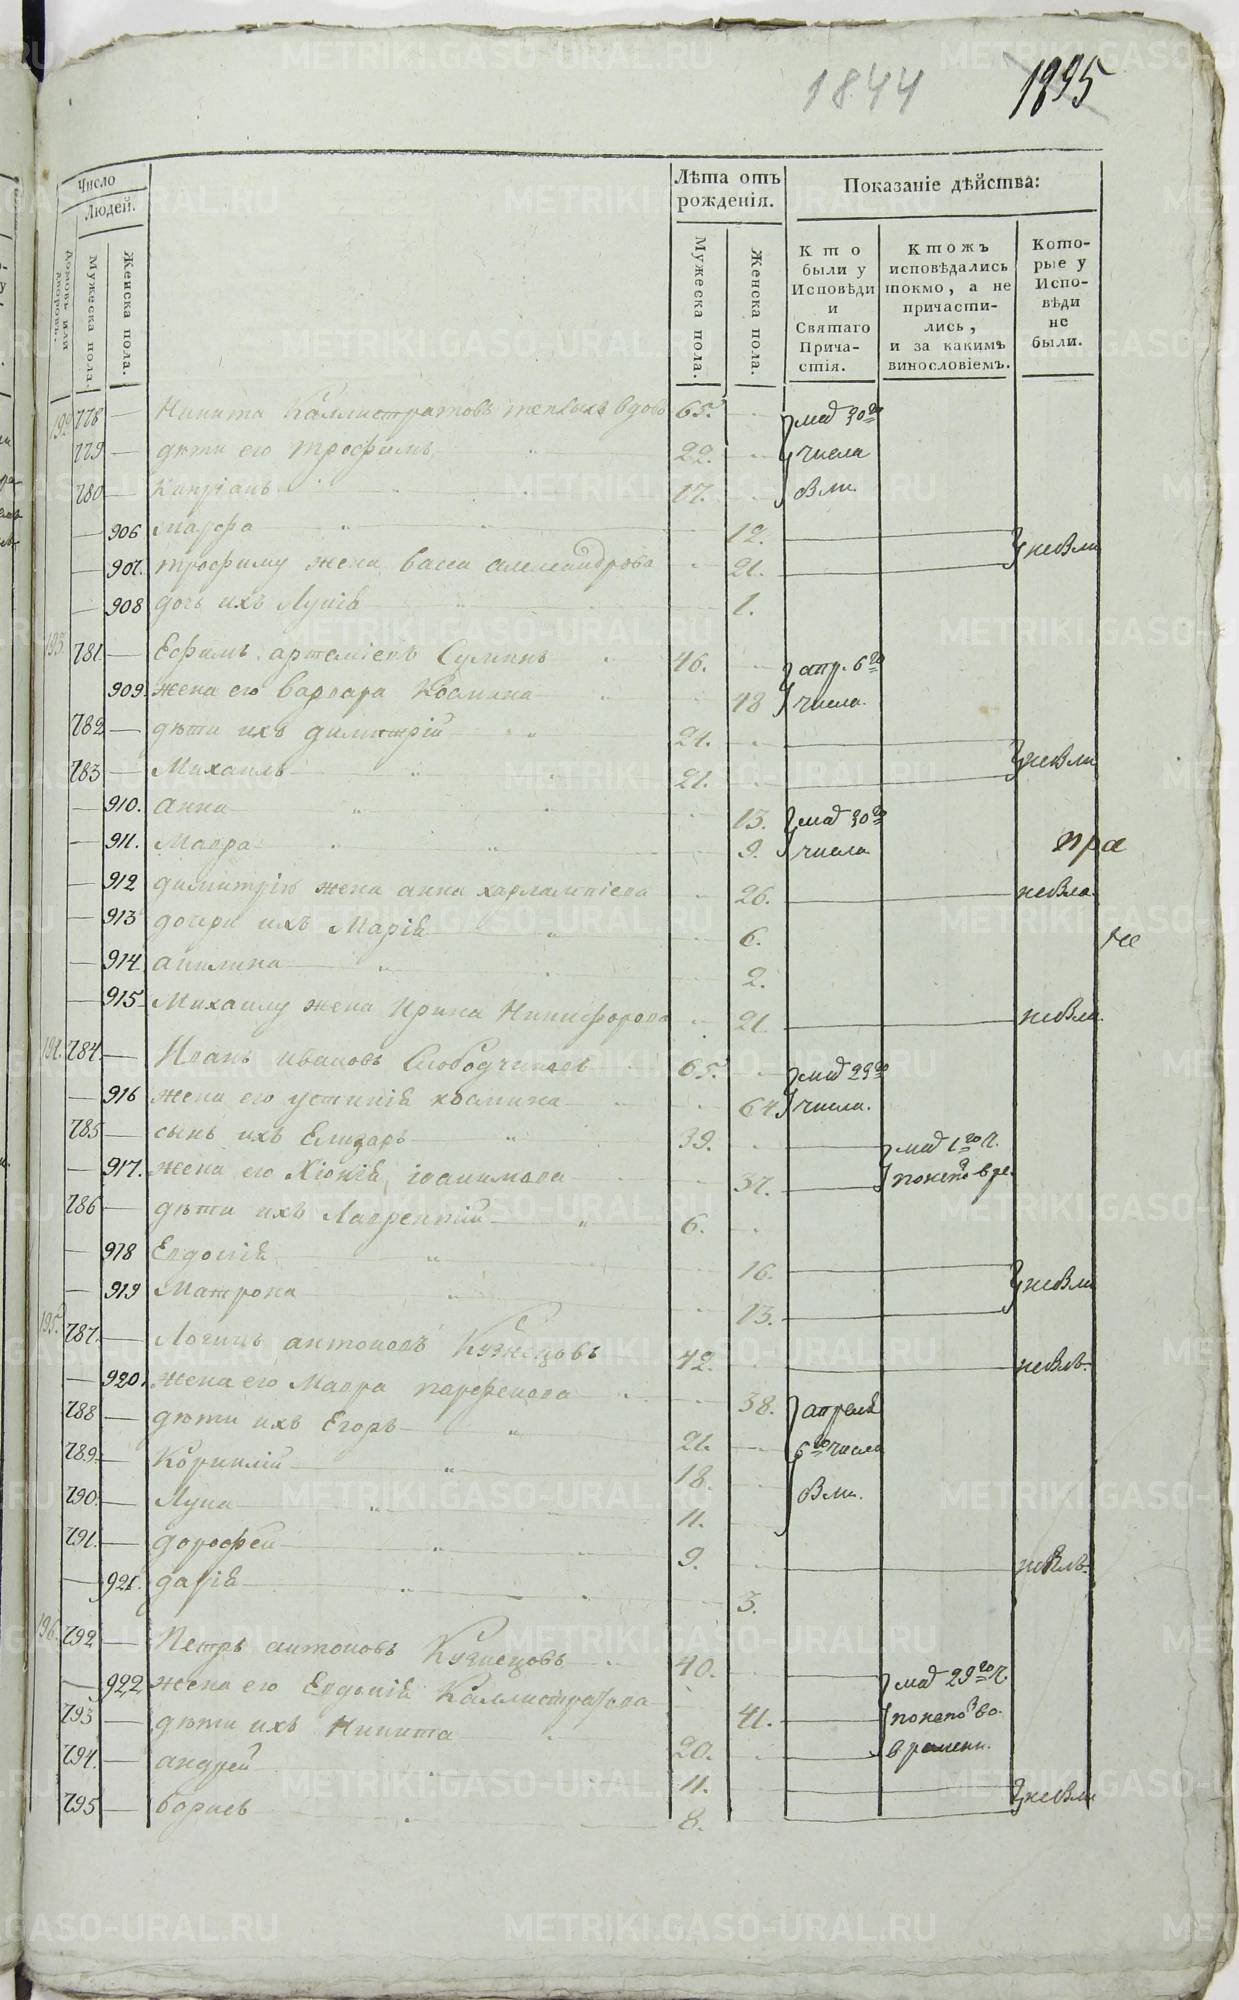 1844 1895
Число
Людей.
Домовъ или дворовъ.
Мужеска пола.
Женска пола.
Лѣта отъ рожденія.
Мужеска пола.
Женска пола.
Показаніе дѣйства:
Кто были у Исповѣди и Святаго Причастія.
Ктожъ исповѣдались токмо, а не причастились, и за какимъ винословіемъ.
Которые у Исповѣди не были.
192 778 — Никита Каллистратовъ вдовъ 65. маія 30го
779 — дѣти его Трофимъ 22. числа
780 — Кипріанъ 17. были
— 906 Марфа 12. небыли
— 907. Трофиму жена Васса Александрова 21.
— 908 дочь ихъ Лукія 1.
193. 781 — Ефимъ Артеміевъ Сулинъ 46. апр. 6го
909. жена его Варвара Космина 48 числа
782 — дѣти ихъ Димитрій 24. небыли
783 — Михаилъ 21.
— 910. Анна 13. маія 30го
— 911. Мавра 9. числа
пра
— 912 Димитрію жена Анна Харлампіева 26. небыла.
— 913 дочери ихъ Марія 6.
— 914 Акилина 2.
— 915 Михаилу жена Ирина Никифорова 21. небыла.
194. 784. — Иванъ Ивановъ Слободчиковъ 65. маія 29го
— 916 жена его Устинія Космина 64 числа.
785 — сынъ ихъ Елизаръ 39. маія 1го ч.
— 917. жена его Хіонія Іоакимова 37.
786 — дѣти ихъ Лаврентій 6.
— 918 Евдокія 16. небыли
— 919 Матрона 13.
195. 787. — Логинъ Антоновъ Кузнецовъ 42. небылъ
— 920. жена его Мавра Парфенова 38. апреля
788 — дѣти ихъ Егоръ 21. 6го числа
789. — Корнилій 18. были.
790. — Лука 11.
791. — Дорофей 9. небылъ
— 921. Дарія 3.
196. 792 — Петръ Антоновъ Кузнецовъ 40. маія 29го ч.
— 922 жена его Евдокія Каллистратова 41.
793 — дѣти ихъ Никита 20. времени.
794. — Андрей 11. небыли
795 — Борисъ 8.
METRIKI.GASO-URAL.RU